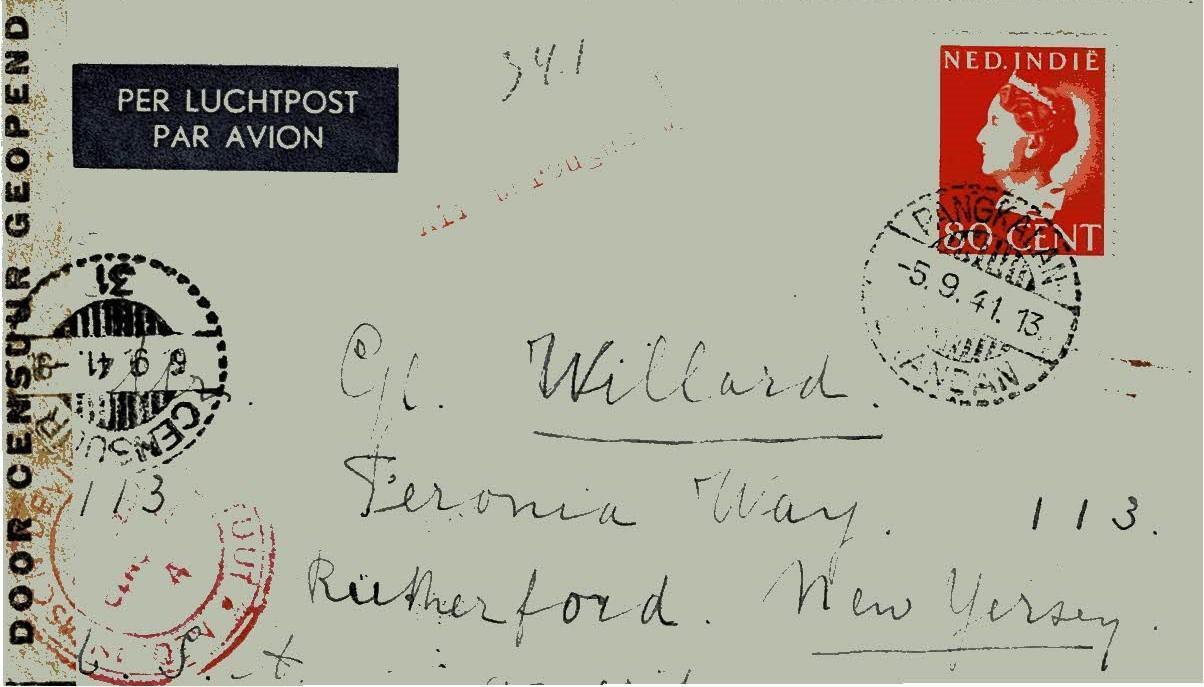 DOOR CENSUUR GEOPEND
PER LUCHTPOST
PAR AVION
341
NED. INDIË
80 CENT
PANGKALAN
-5.9.41.13
ANDAN
31
6.9.41.
CENSUUR
Mr. Gl. Willard.
Feronia Way. 113.
113
Rutherford. New Yersey.
U.S.A.
A